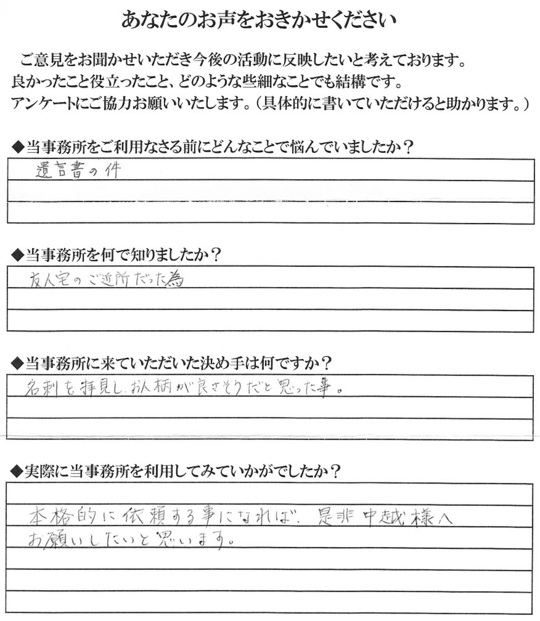 あなたのお声をおきかせください
ご意見をお聞かせいただき今後の活動に反映したいと考えております。
良かったこと役立ったこと、どのような些細なことでも結構です。
アンケートにご協力お願いいたします。（具体的に書いていただけると助かります。）
◆当事務所をご利用なさる前にどんなことで悩んでいましたか？
遺言書の件
◆当事務所を何で知りましたか？
友人宅のご近所だった為
◆当事務所に来ていただいた決め手は何ですか？
名刺を拝見し、お人柄が良さそうだと思った事。
◆実際に当事務所を利用してみていかがでしたか？
本格的に依頼する事になれば、是非中越様へ
お願いしたいと思います。